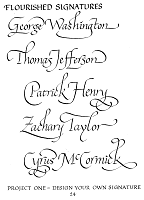 FLOURISHED SIGNATURES
George Washington
Thomas Jefferson
Patrick Henry
Zachary Taylor
Cyrus McCormick
PROJECT ONE - DESIGN YOUR OWN SIGNATURE
54